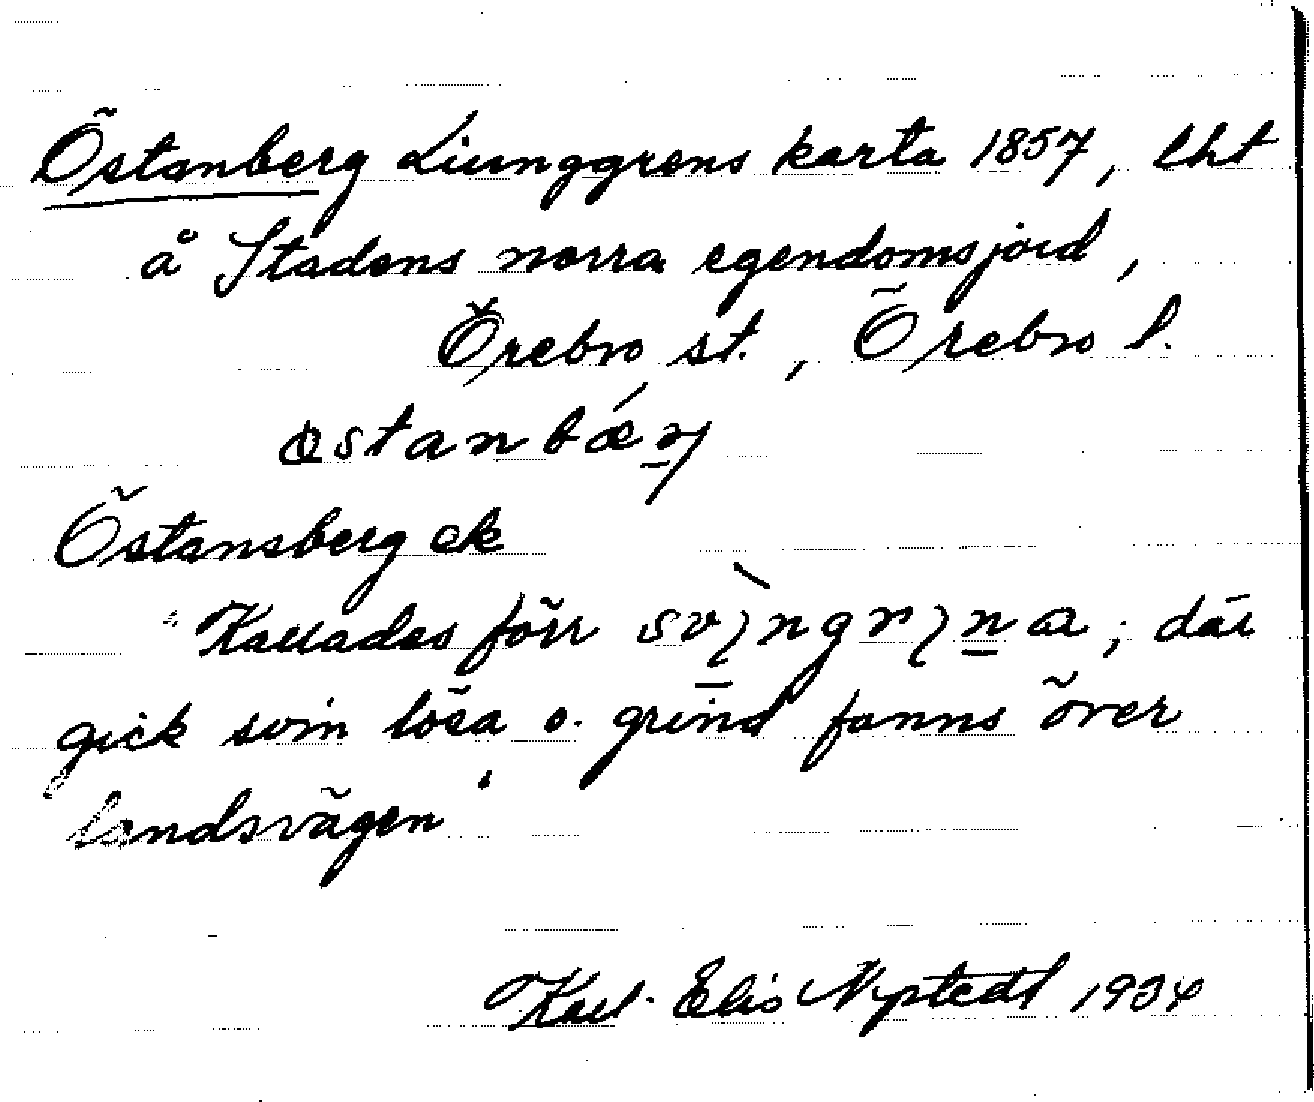 Östanberg Liunggrens karta 1857, lht
å Stadens norra egendomsjord,
Örebro st., Örebro l.
östanbær̲j
Östansberg ek
"Kallades förr svìngri̲n̲a; där
gick svin lösa o. grind fanns över
landsvägen"
Karl-Elis Nystedt 1934